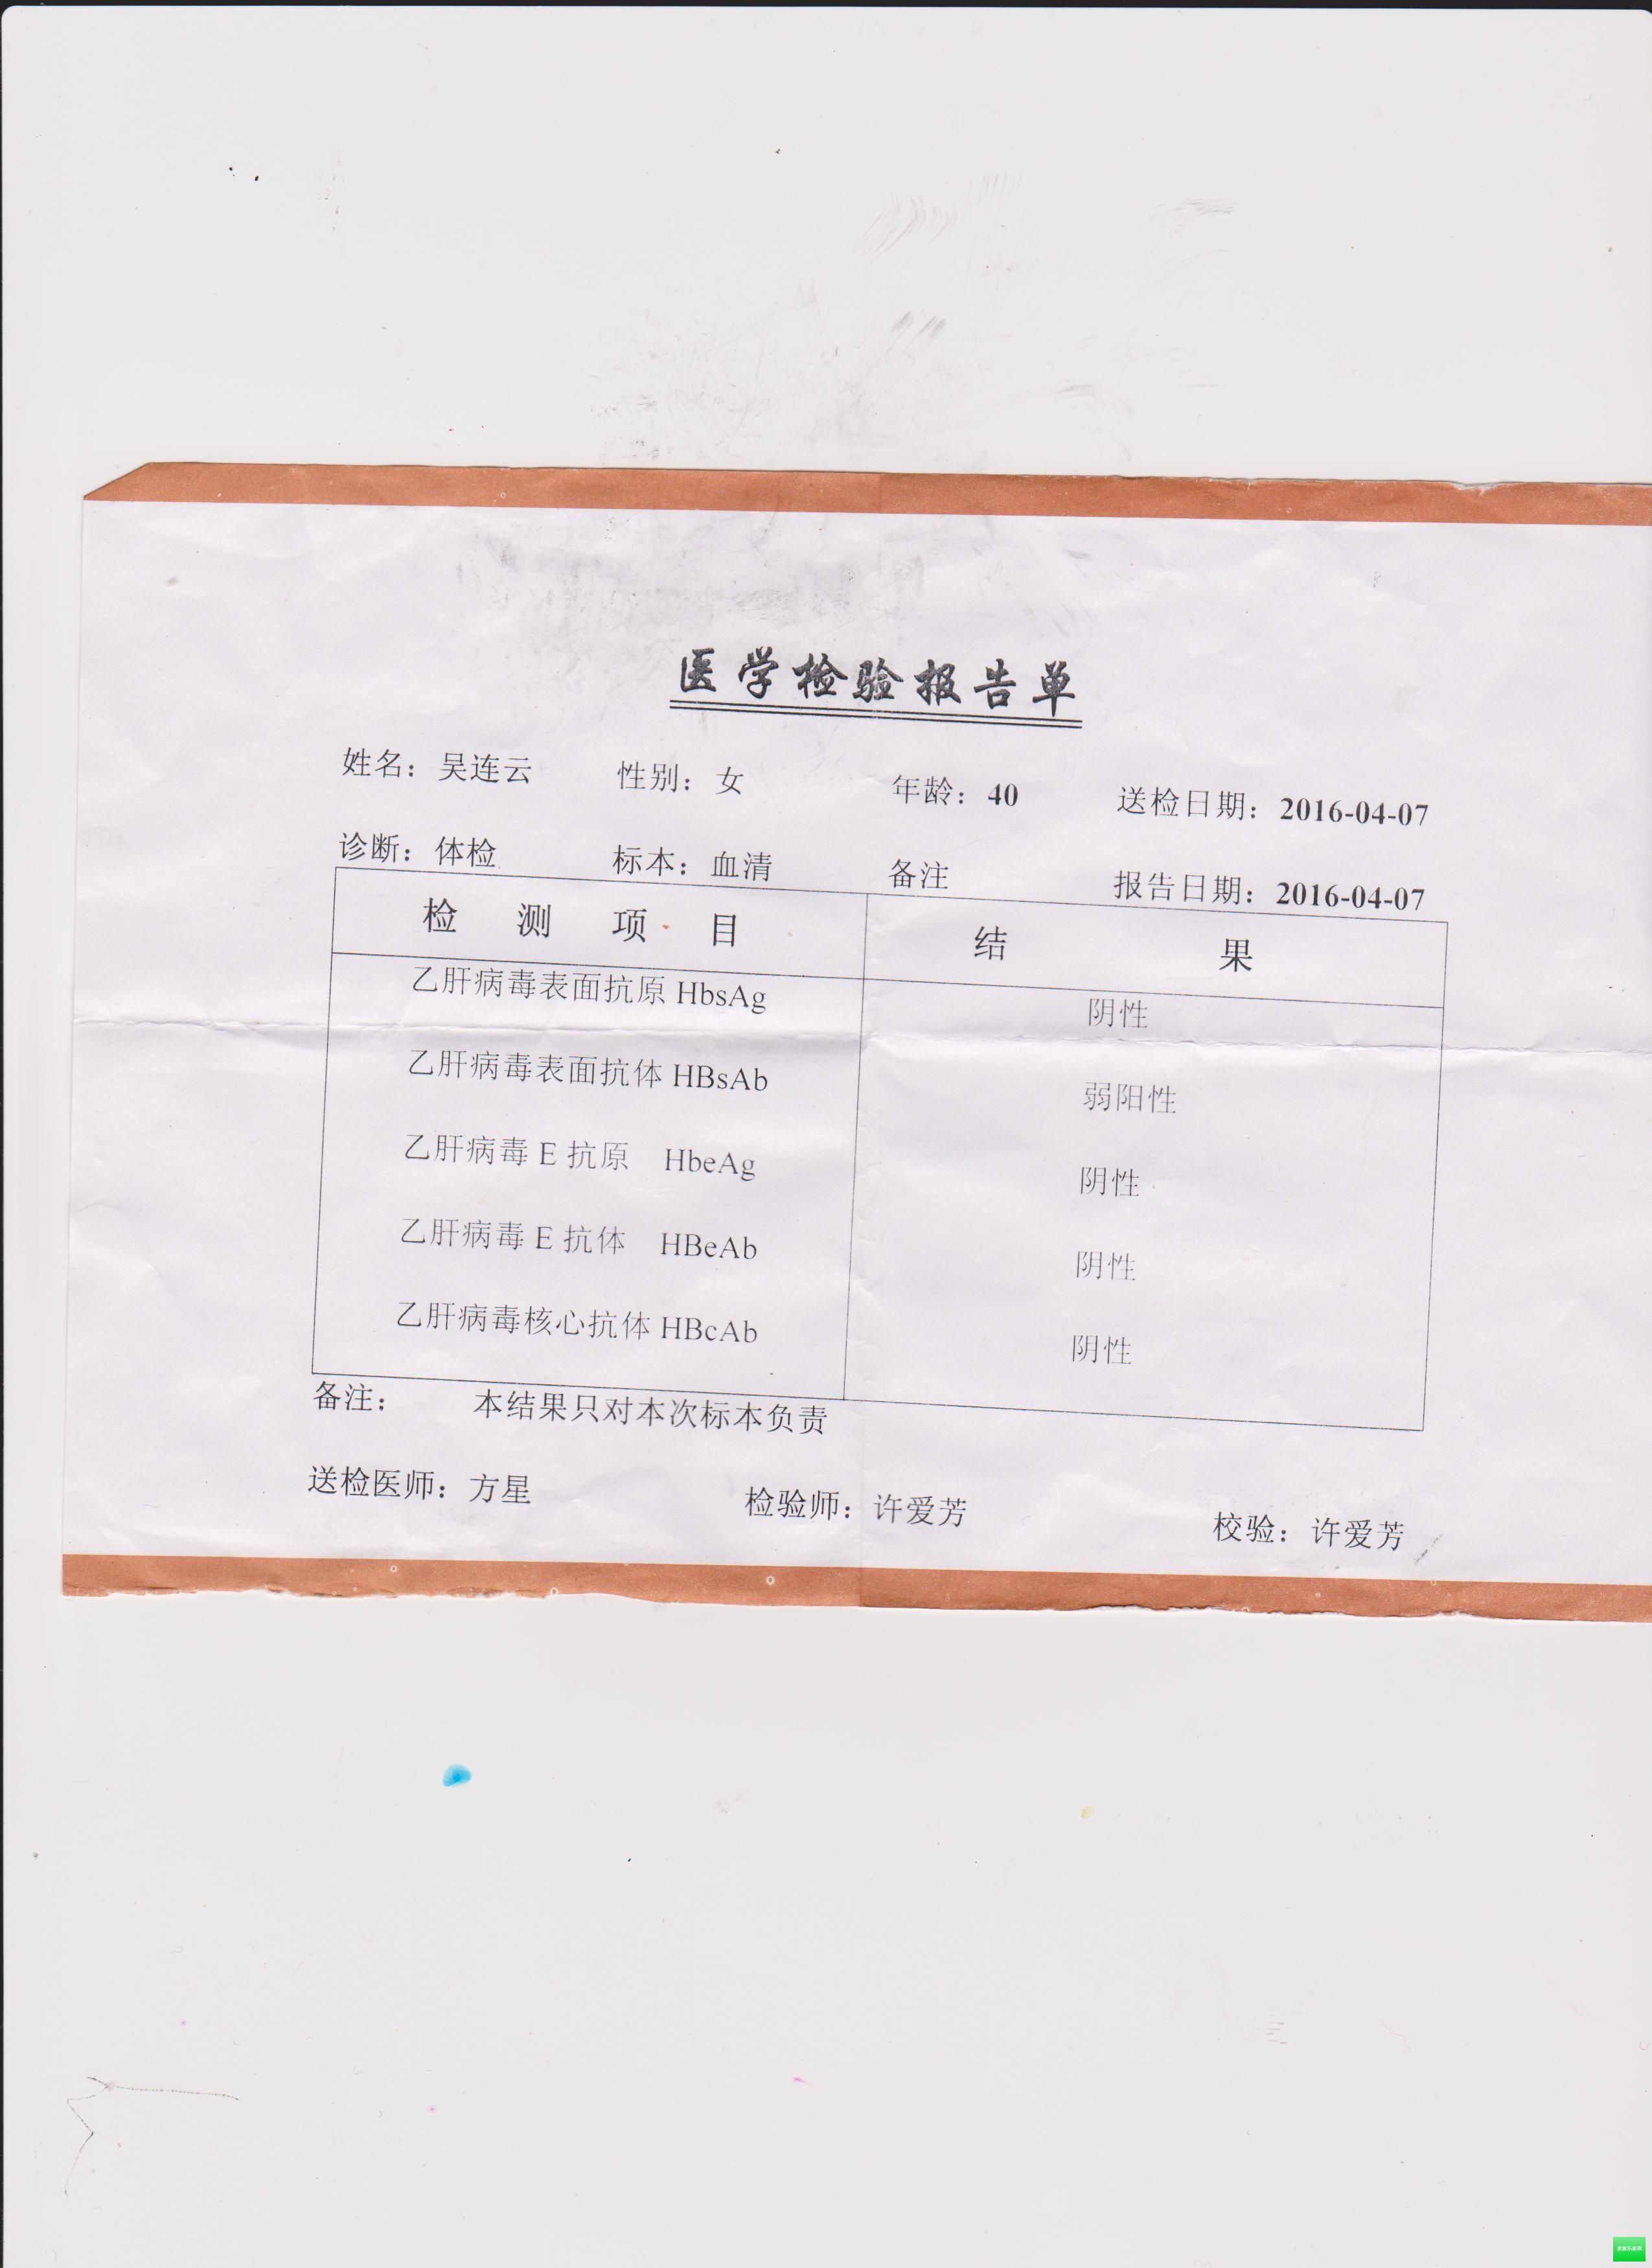 医学检验报告单
姓名：吴连云 性别：女 年龄：40 送检日期：2016-04-07
诊断：体检 标本：血清 备注 报告日期：2016-04-07
检测项目 结果
乙肝病毒表面抗原 HbsAg 阴性
乙肝病毒表面抗体 HBsAb 弱阳性
乙肝病毒 E 抗原 HbeAg 阴性
乙肝病毒 E 抗体 HBeAb 阴性
乙肝病毒核心抗体 HBcAb 阴性
备注： 本结果只对本次标本负责
送检医师：方星 检验师：许爱芳 校验：许爱芳